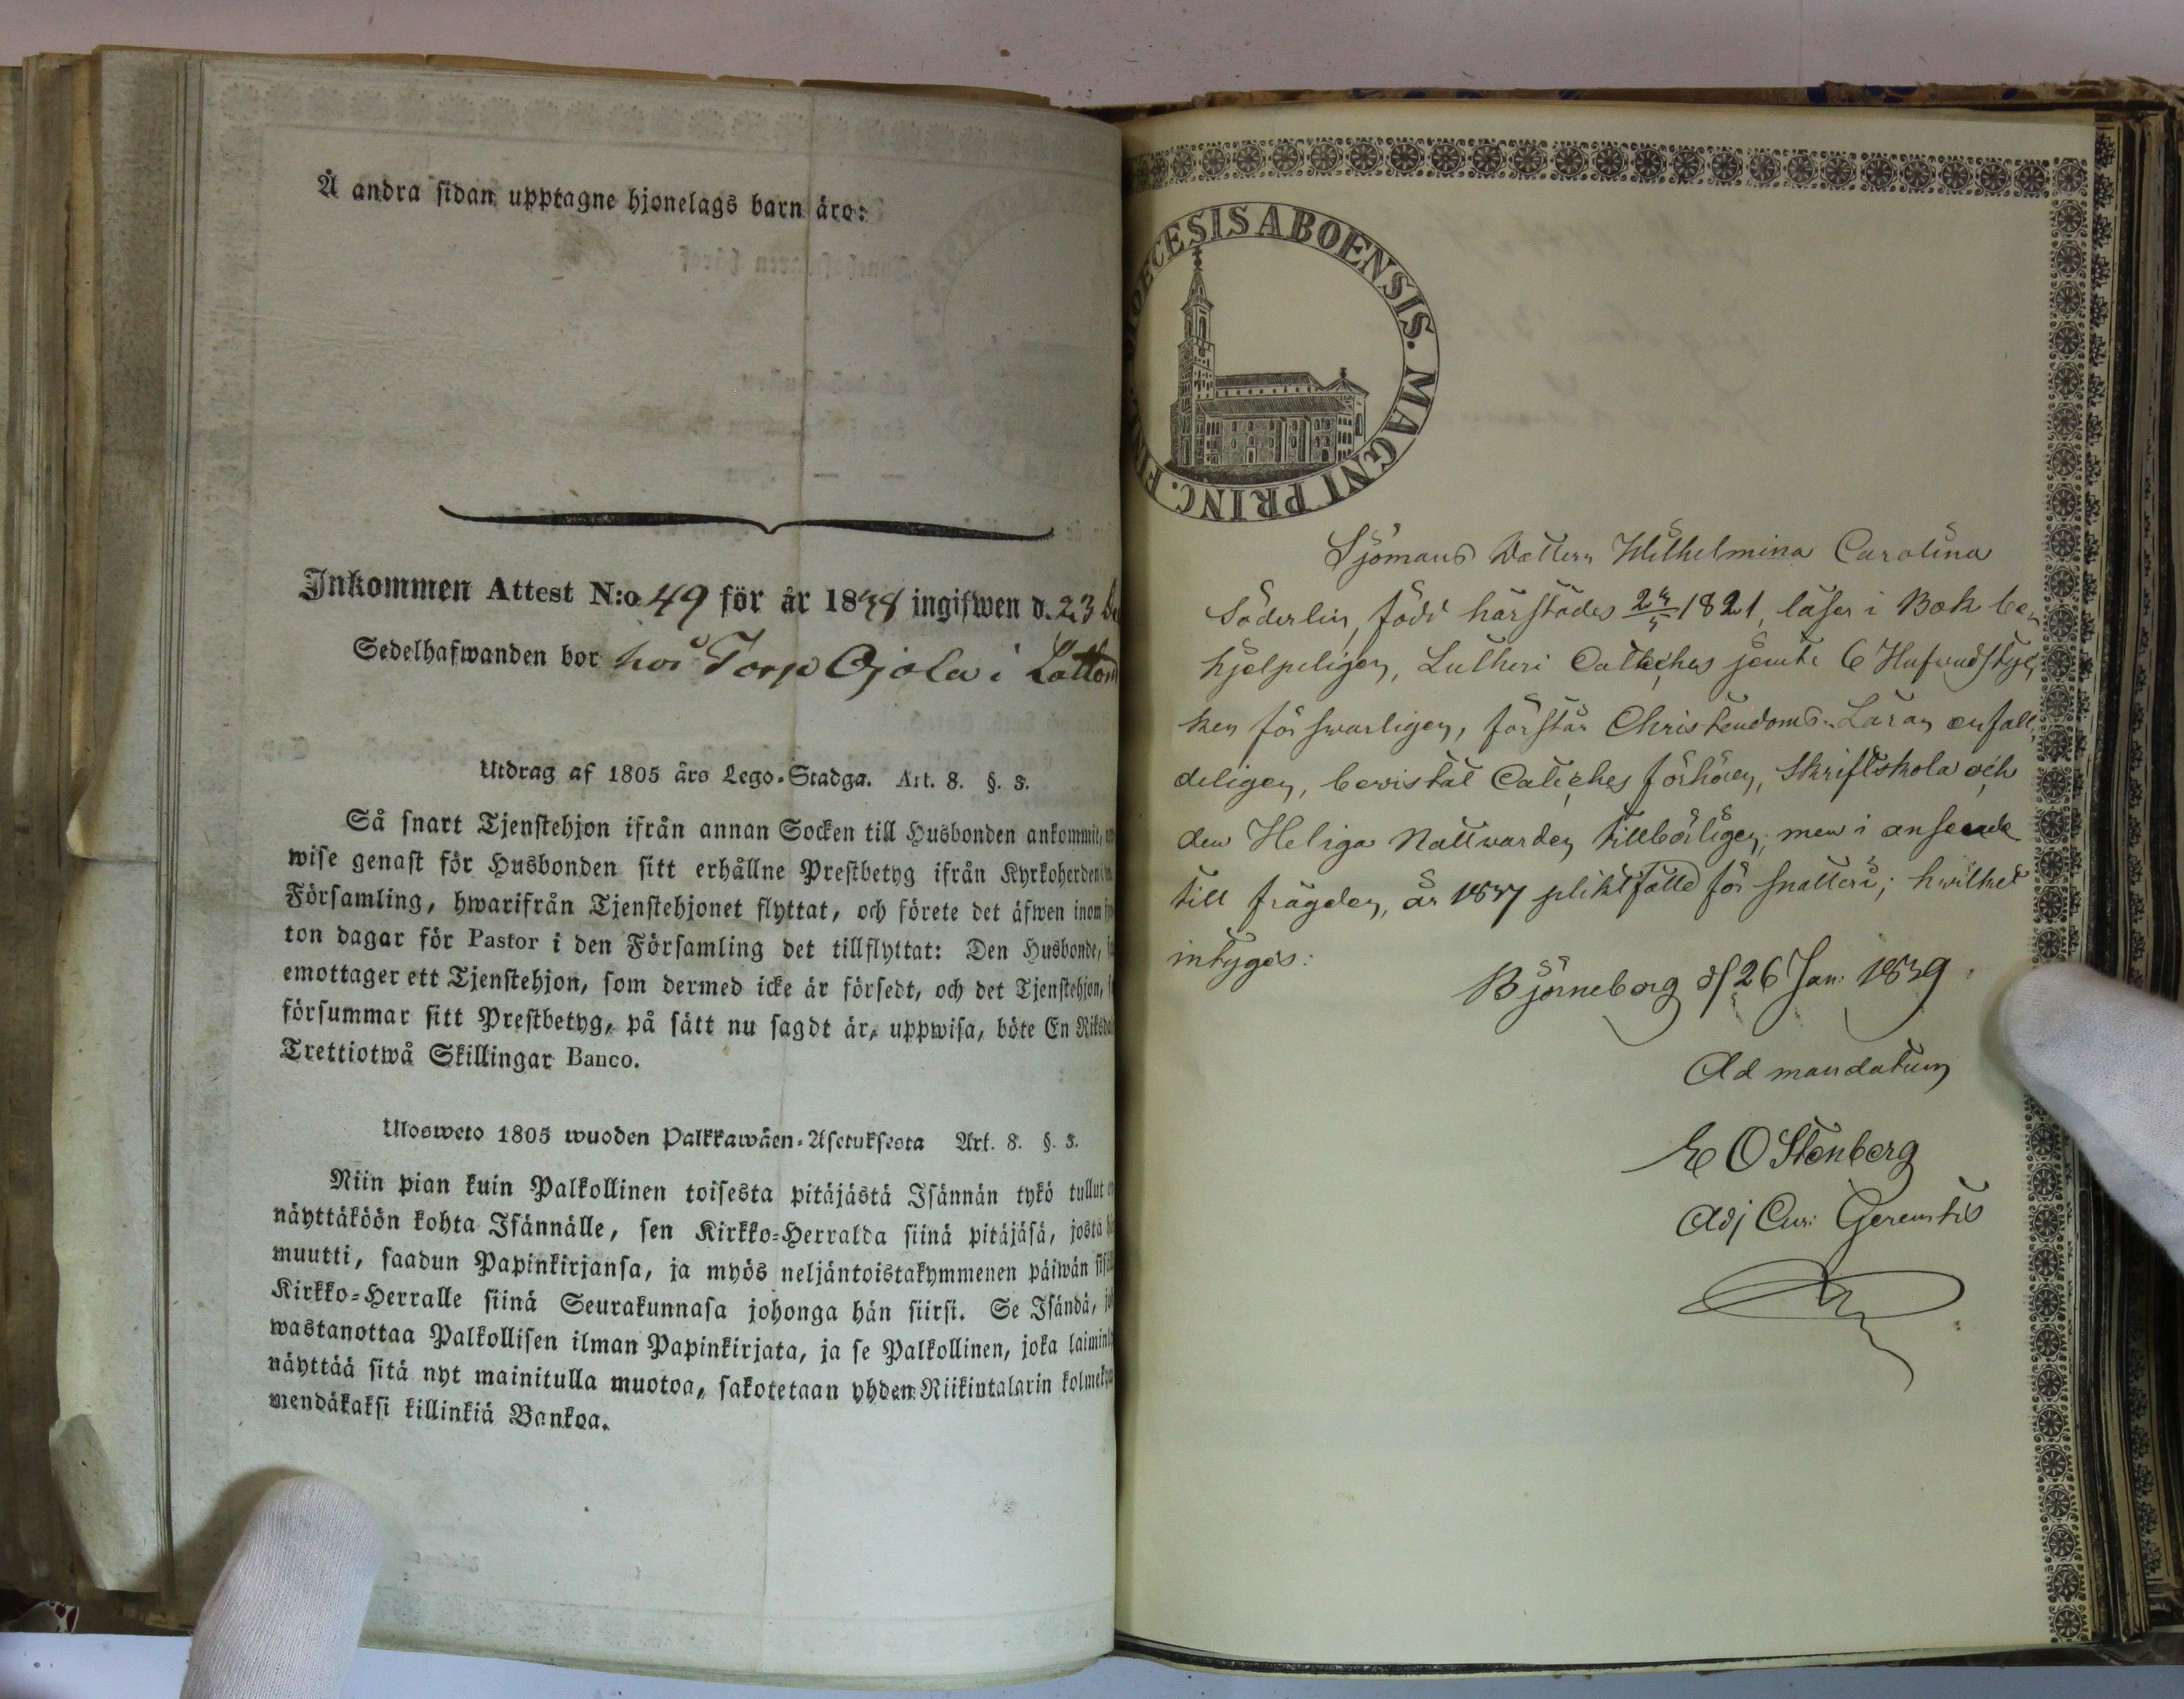 Å andra sidan upptagne hjonelags barn äro:
Inkommen Attest N:o 49 för år 1838 ingifwen d. 23
Sedelhafwanden bor hos Torp Ojola i
Utdrag af 1805 års Lego-Stadga. Art. 8. §. 3.
Så snart Tjenstehjon ifrån annan Socken till Husbonden ankommit,
wise genast för Husbonden sitt erhållne Prestbetyg ifrån Kyrkoherden
Församling, hwarifrån Tjenstehjonet flyttat, och förete det äfwen inom
ton dagar för Pastor i den Församling det tillflyttat: Den Husbonde,
emottager ett Tjenstehjon, som dermed icke är försedt, och det Tjenstehjon,
försummar sitt Prestbetyg, på sätt nu sagdt är, uppwisa, böte En
Trettiotwå Skillingar Banco.
Ulosweto 1805 wuoden Palkkawäen-Asetuksesta Art. 8. §. 3.
Niin pian kuin Palkollinen toisesta pitäjästä Isännän tykö tullut
näyttäköön kohta Isännälle, sen Kirkko-Herralda siinä pitäjäsä, josta
muutti, saadun Papinkirjansa, ja myös neljäntoistakymmenen päiwän
Kirkko-Herralle siinä Seurakunnasa johonga hän siirsi. Se Isändä,
wastanottaa Palkollisen ilman Papinkirjata, ja se Palkollinen, joka
näyttää sitä nyt mainitulla muotoa, sakotetaan yhden Riikintalarin
mendäkaksi killinkiä Bankoa.
DIOECESIS ABOENSIS. MAGNI PRINC.
Sjömans Dottern Wilhelmina Carolina
Söderlin, född härstädes 24/5 1821, läser i Bok be-
hjelpeligen, Lutheri Cateches jemte 6 Hufwudstyc-
ken förswarligen, förstår Christendoms-Läran enfal-
deligen, bevistat Catechesförhören, Skriftskola och
den Heliga Nattwarden tillbörligen; men i anseende
till frägden, år 1837 pliktfälld för snatteri; hwilket
intygas:
Björneborg d 26 Jan: 1839.
Ad mandatum
E O Stenberg
Adj Cur: Gerentis